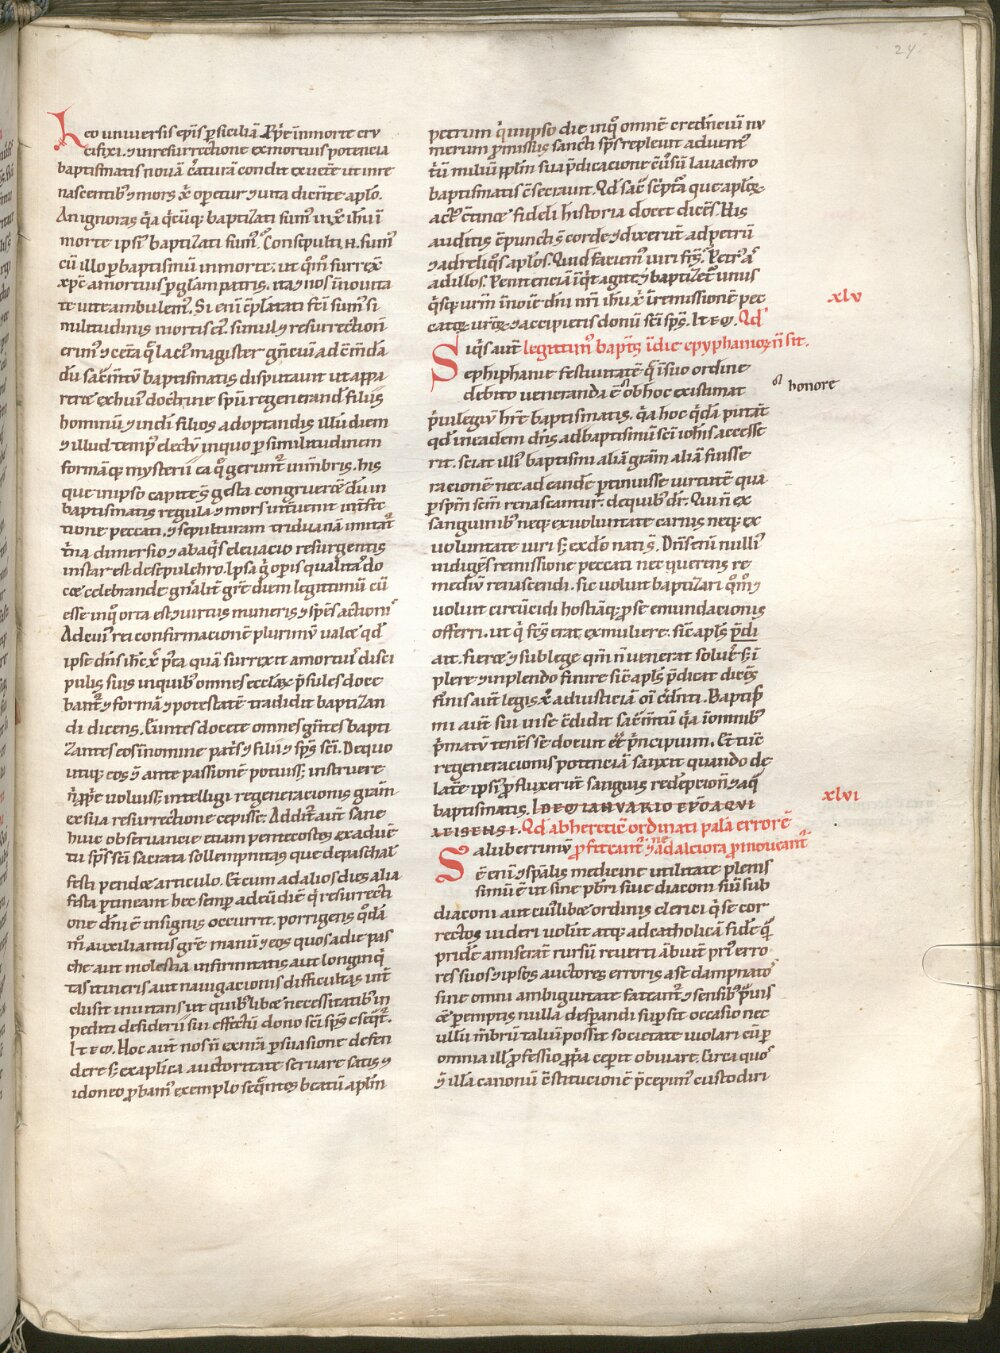 24
Leo universis ep̄is p siciliā. Xp̄c in morte cru
cifixi. ⁊ in resurrectione ex mortuis potencia
baptismatis novā c̄aturā condit ex vet̄e ut in re
nascentib; ⁊ mors x̄ op̄etur ⁊ vita dicēte ap̄lo.
An ignoras q̄a q̄cūq; baptizati sum' in x̄o ih̄u ī
morte ipsi' baptizati sum'. Consepulti .n. sum'
cū illo p baptismū in morte. ut q̄m̄ surrex̄
xp̄c a mortuis p gl̄am patris. ita ⁊ nos ī novita
te vite ambulem'. Si enī c̄plātati fc̄i sum' si
militudinis mortis ei'. simul ⁊ resurrectioni
erim' ⁊ cet̄a q̄ lac' magister gn̄ciū ad c̄mdā
dū sac̄mtū baptismatis disputavit ut appa
hominū ⁊ in dī filios adoptandis illū diem
⁊ illud temp' electū in quo p similitudinem
formāq; mysterii ea q̄ gerunt' in mēbris. his
que in ipso capite s̄ gesta congruerēt dū in
baptismatis regula ⁊ mors int̄venit int̄fec
tione peccati. ⁊ sepulturam triduanā imitat̄
t̄na dimersio ⁊ ab aq̄s elevacio resurgentis
instar est de sepulchro. Ipsa q̄ op̄is qualitas do
cet celebrande gn̄alit̄ gr̄e diem legitimū eū
esse in q̄ orta est ⁊ virtus muneris ⁊ sp̄es actionis
Ad cui' rei confirmacionē plurimū valet qd̄
ipse dn̄s ih̄c x̄ p'ea quā surrexit a mortuis disci
pulis suis in quib; omnes eccl̄ax p̄sules doce
bant' ⁊ formā ⁊ potestatē tradidit baptizan
di dicens. Euntes docete omnes gn̄tes bapti
zantes eos ī nomine pat̄s ⁊ filii ⁊ sp̄s sc̄i. De quo
utiq; eos ⁊ ante passionē potuiss; instruere
n̄ pp̄e voluiss; intelligi regeneracionis gr̄am
ex sua resurrectione cepisse. Addit' aut̄ sane
huic observancie etiam pentecostes ex adven
tu sp̄s sc̄i sacrata sollempnitas que de paschal'
festi pendet articulo. Et cum ad alios dies alia
festa ptineant hec semp ad eū diē q̄ resurrecti
one dn̄i ē insignis occurrit. porrigens q̄dā
m̄ auxiliantis gr̄e manū ⁊ eos quos a die pas
che aut molestia infirmitatis aut longinq̄
tas itineris aut navigacionis difficultas int̄
clusit invitans ut quiblibet necessitatib; in
pediti desiderii sui effectū dono sc̄i sp̄s c̄seq̄t'.
ITEM. Hoc aut̄ nos n̄ ex nr̄a psuasione defen
dere s; ex ap̄lica auctoritate servare satis ⁊
idoneo pbam' exemplo seq̄ntes beatū ap̄lm̄
petrum q̄ in ipso die in q̄ omnē credn̄ciū nu
merum pmissus sancti sp̄s replevit advent'
t̄ū miliū pp̄lm̄ sua p̄dicacione c̄v̄sū lavachro
baptismatis c̄secravit. Qd̄ sac̄ sc̄pt̄a que ap̄lox
act' c̄tinet fideli historia docet dicēs. His
auditis c̄puncti s̄ corde ⁊ dixerūt ad petrū
⁊ ad reliq̄s ap̄los. Quid faciem' viri fr̄s. Petr' ā
ad illos. Penitenciā inq̄t agite ⁊ baptizet' unus
q̄sq; vr̄m in noīe dn̄i nr̄i ih̄u x̄ ī remissionē pec
catox vr̄ox ⁊ accipietis donū sc̄i sp̄s. ITEM. Qd̄
xlv
Siq̄s aut̄ legitimū bapt̄s ī die epyphaniox n̄ sit.
ephiphanie festivitatē q̄ ī suo ordine
debito veneranda ē ob hoc existimat
honore
p̄vilegiū hr̄e baptismatis. q̄a hoc q̄dā putāt
qd̄ in eadem dn̄s ad baptismū sc̄i ioh̄is accesse
rit. sciat illi' baptismi aliā gr̄am aliā fuisse
racionē nec ad eandē ptinuisse virtutē qua
p sp̄m sc̄m renascuntur. de quib; dr̄. Qui n̄ ex
sanguinib; neq; ex voluntate carnis neq; ex
voluntate viri s; ex d̄o nati s̄. Dn̄s enī nulli'
indiges remissione peccati nec querens re
mediū renascendi. sic voluit baptizari q̄m̄ ⁊
voluit circūcidi hostiāq; p se emundacionis
offerri. ut q̄ fc̄s erat ex muliere. sic̄ ap̄ls p̄di
cat. fieret ⁊ sub lege q̄m n̄ venerat solv̄e s; ī
plere ⁊ inplendo finire sic̄ ap̄ls p̄dicat dicēs
finis aut̄ legis x̄ ad iusticiā oī c̄dn̄ti. Baptis
mi aut̄ sui in se c̄didit sac̄mtū q̄a ī omnib;
p̄matū tenēs se docuit eē p̄ncipium. Et tūc
regeneracionis potenciā sanxit quando de
lat̄e ipsi' pfluxerūt sanguis redēpcion̄ ⁊ aq̄
baptismatis. IDEO IANVARIO EPO AQVI
xlvi
LEIENSI. Qd̄ ab hereticē ordinati palā errorē
Saluberrimū pfiteant' ⁊ n̄ ad alciora pmoveant'
ē enī ⁊ sp̄alis medicine utilitate plenis
simū ē ut sine pb̄ri sive diaconi sūi sub
diaconi aut cui'libet ordinis clerici q̄ se cor
rectos videri volūt atq; ad catholicā fidē q̄
pridē amiserāt rursū reverti ābiūt pri' erro
res suos ⁊ ipsos auctores erroris a se dampnatos
sine omni ambiguitate fateant' ⁊ sensib; p̄vis
ōe pemptis nulla desp̄andi supsit occasio nec
ullū mēbrū taliū possit societate violari cū p
omnia ill' pfessio ppa cep̄it obviare. Circa quos
⁊ illā canonū c̄stitucionē p̄cepim' custodiri